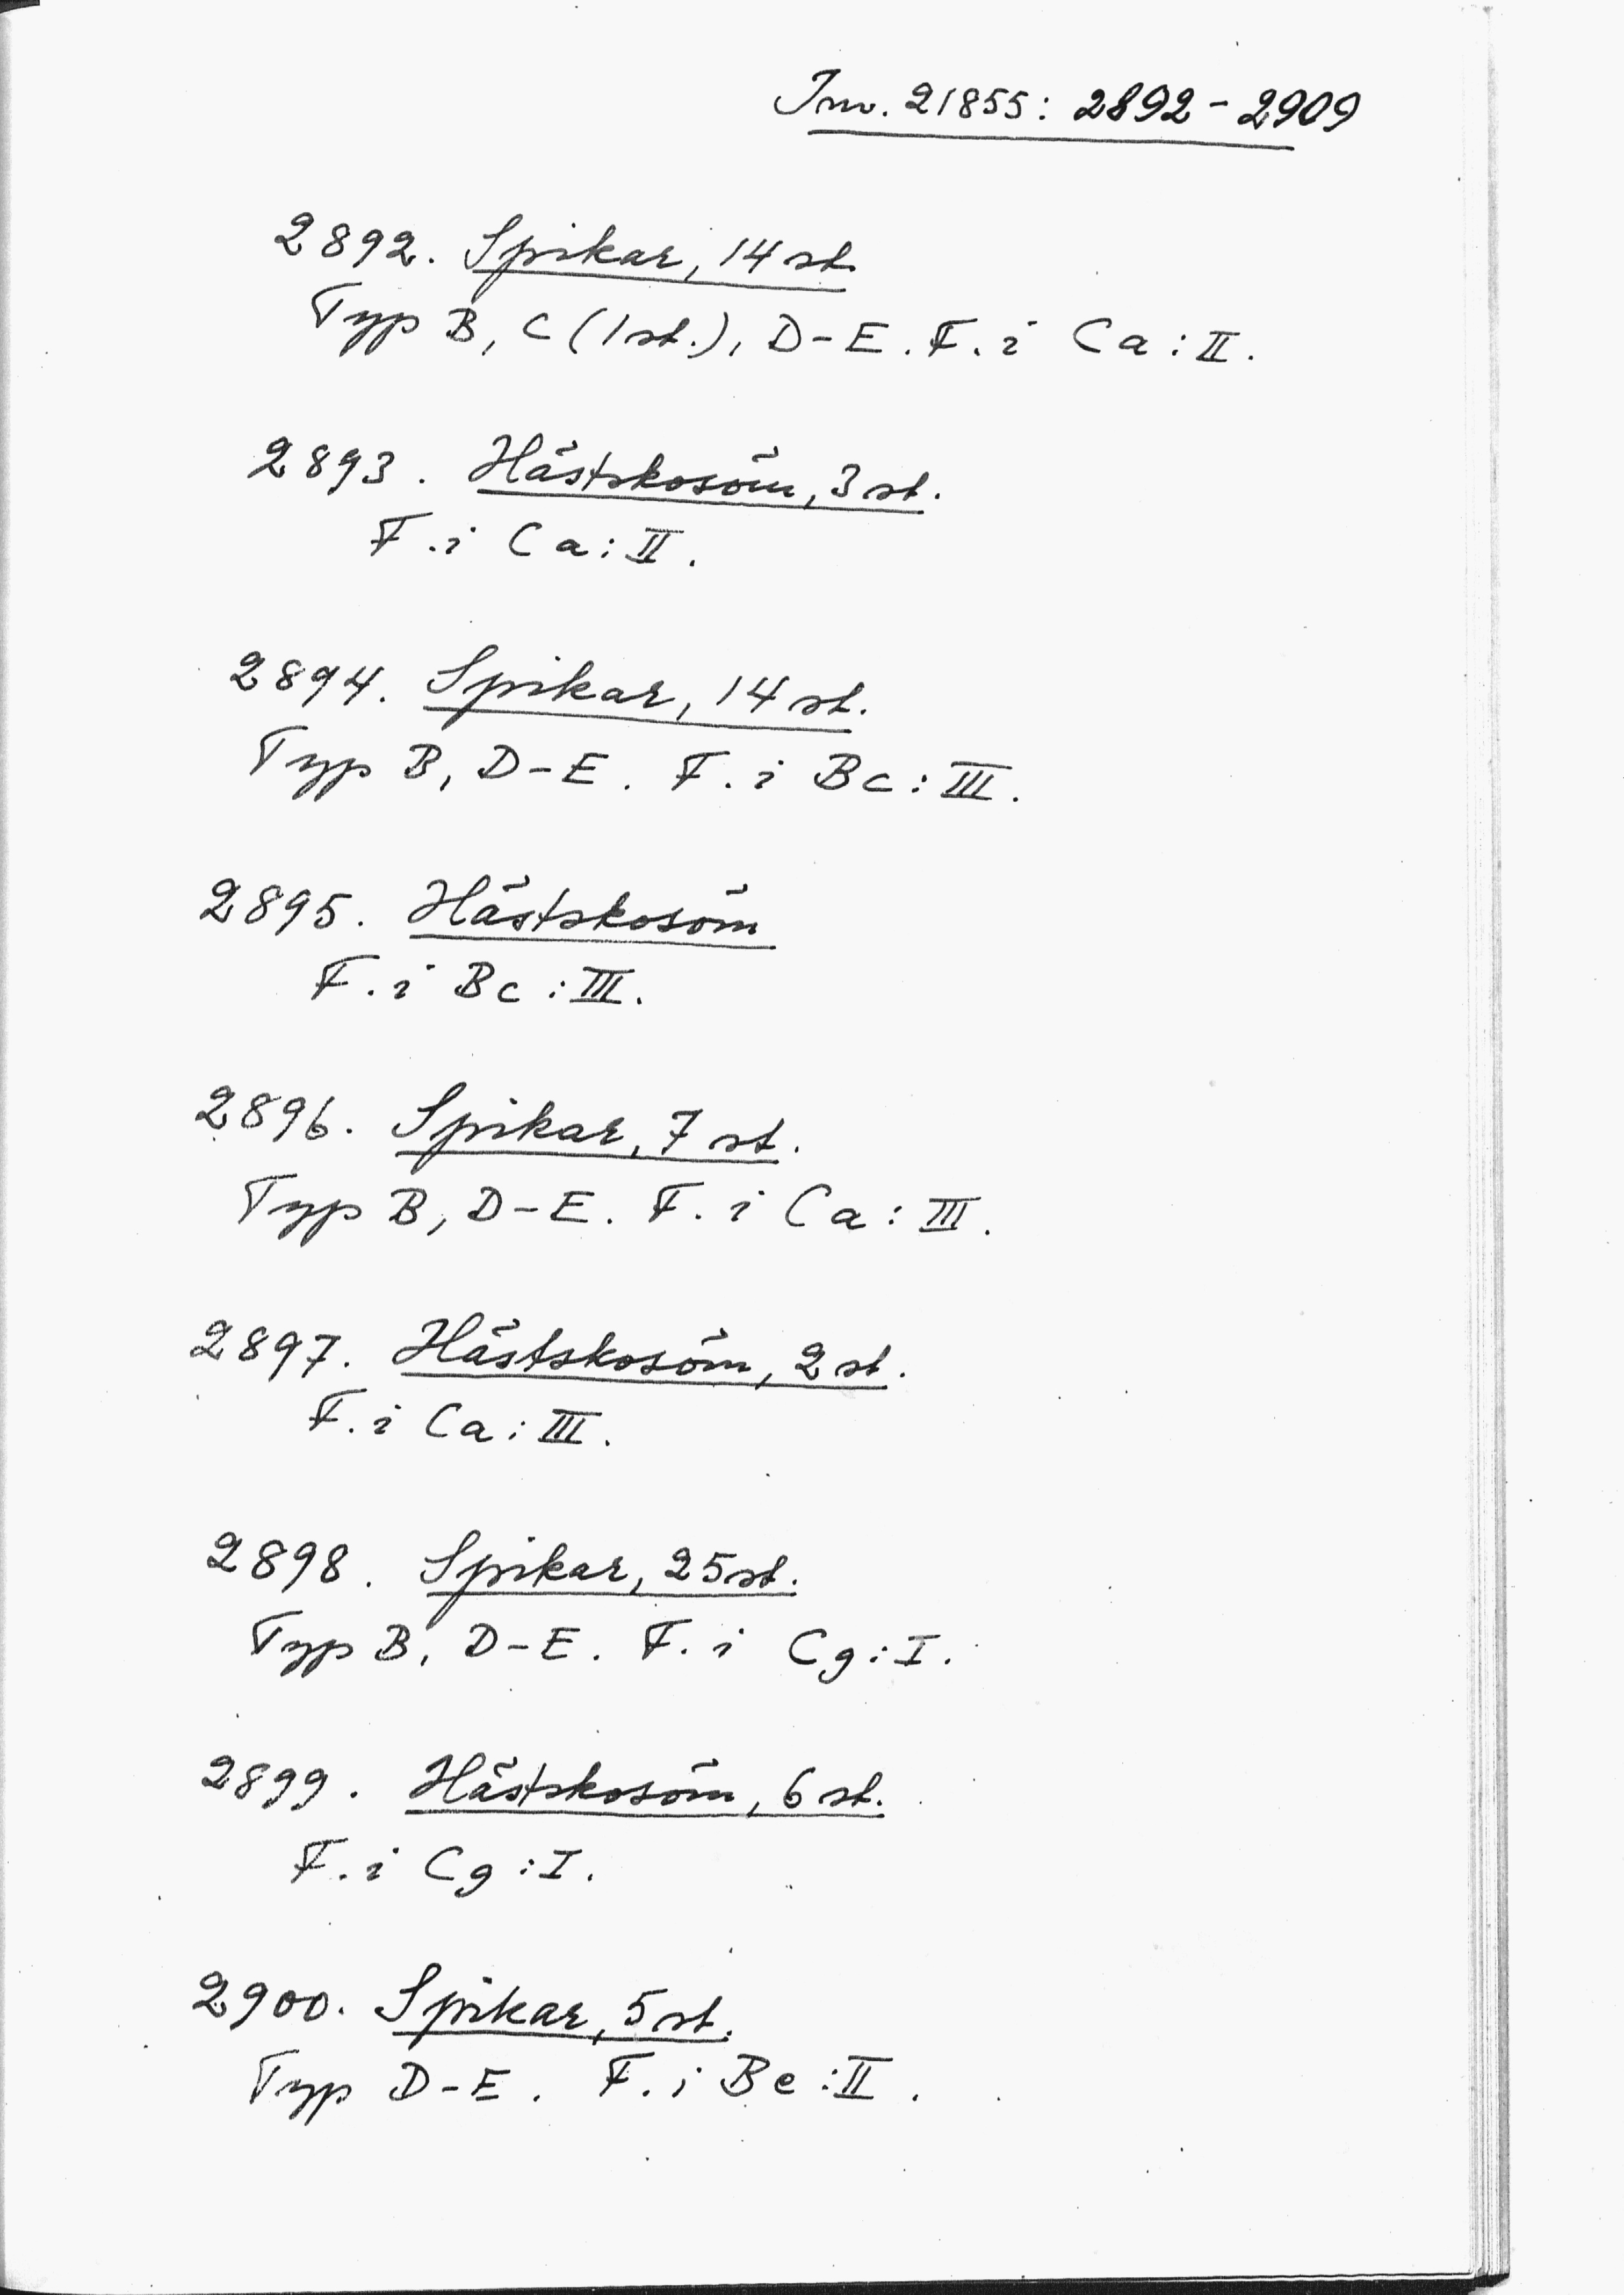 Inv. 21855: 2892-2909
2892. Spikar, 14 st.
Typ B, C (1 st.), D-E. F. i Ca:II.
2893. Hästskosöm, 3 st.
F. i Ca:II.
2894. Spikar, 14 st.
Typ B, D-E. F. i Bc:III.
2895. Hästskosöm
F. i Bc:III.
2896. Spikar, 7 st.
Typ B, D-E. F. i Ca:III.
2897. Hästskosöm, 2 st.
F. i Ca:III.
2898. Spikar, 25 st.
Typ B, D-E. F. i Cg:I.
2899. Hästskosöm, 6 st.
F. i Cg:I.
2900. Spikar, 5 st.
Typ D-E. F. i Be:II.